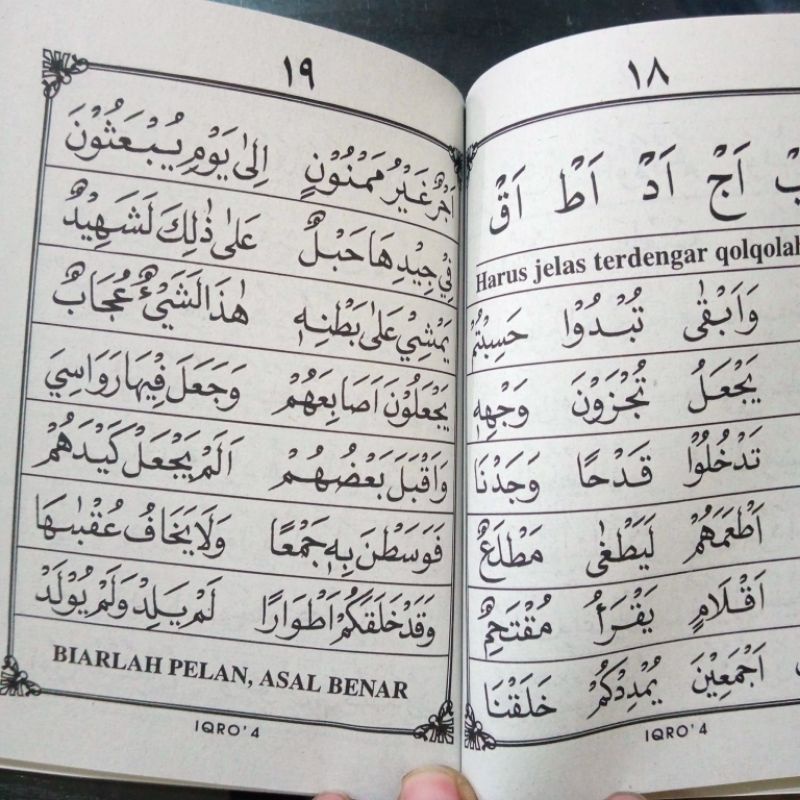 ١٨
اَجْ اَدْ اَطْ اَقْ
Harus jelas terdengar qolqolah
وَاَبْقٰى تُبْدُوْا حَسِبْتُمْ
يَجْعَلُ تُجْزَوْنَ وَجْهِهٖ
تَدْخُلُوْا قَدْحًا وَجَدْنَا
اَطْعَمَهُمْ لَيَطْغٰى مَطْلَعٌ
اَقْلَامٍ يَقْرَأُ مُقْتَحِمٌ
اَجْمَعِيْنَ يُمْدِدْكُمْ خَلَقْنَا
IQRO' 4
١٩
اَجْرٌ غَيْرُ مَمْنُوْنٍ اِلٰى يَوْمِ يُبْعَثُوْنَ
فِيْ جِيْدِهَا حَبْلٌ عَلٰى ذٰلِكَ لَشَهِيْدٌ
يَمْشِيْ عَلٰى بَطْنِهٖ هٰذَا لَشَيْءٌ عُجَابٌ
يَجْعَلُوْنَ اَصَابِعَهُمْ وَجَعَلَ فِيْهَا رَوَاسِيَ
وَاَقْبَلَ بَعْضُهُمْ اَلَمْ يَجْعَلْ كَيْدَهُمْ
فَوَسَطْنَ بِهٖ جَمْعًا وَلَا يَخَافُ عُقْبٰىهَا
وَقَدْ خَلَقَكُمْ اَطْوَارًا لَمْ يَلِدْ وَلَمْ يُوْلَدْ
BIARLAH PELAN, ASAL BENAR
IQRO' 4